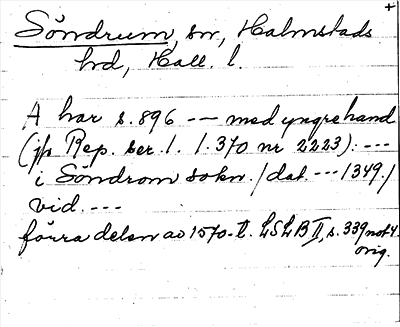 +
Söndrum, sn, Halmstads
hd, Hall. l.
A har s. 896 --- med yngre hand
(jfr Rep. ser. 1. 1. 370 nr 2223). ---
i Söndrom sokn. / dat --- 1349. /
vid. ---
förra delen av 1570-t. LSLB II, s. 339 not 4.
orig.